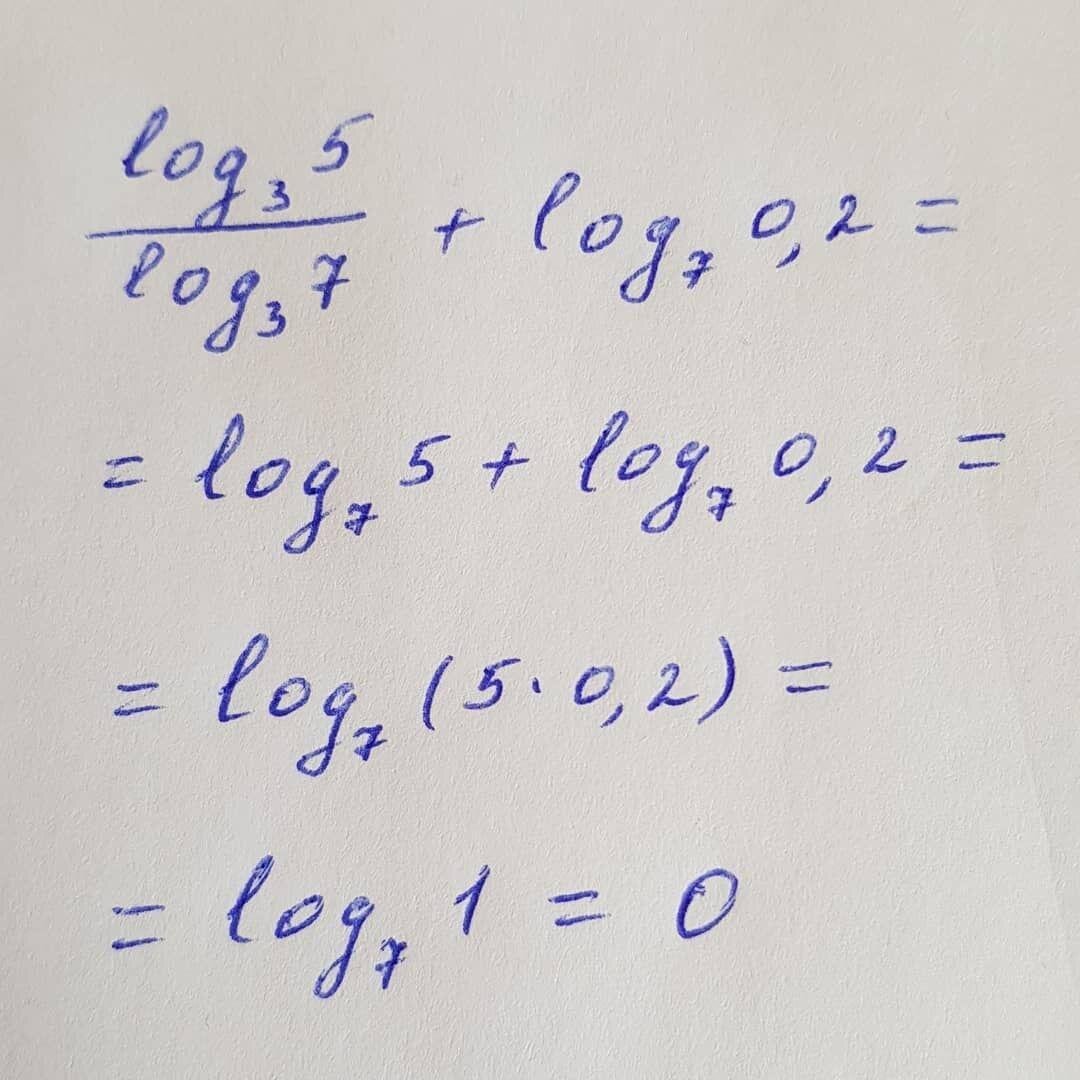 log₃5 / log₃7 + log₇0,2 =
= log₇5 + log₇0,2 =
= log₇(5·0,2) =
= log₇1 = 0